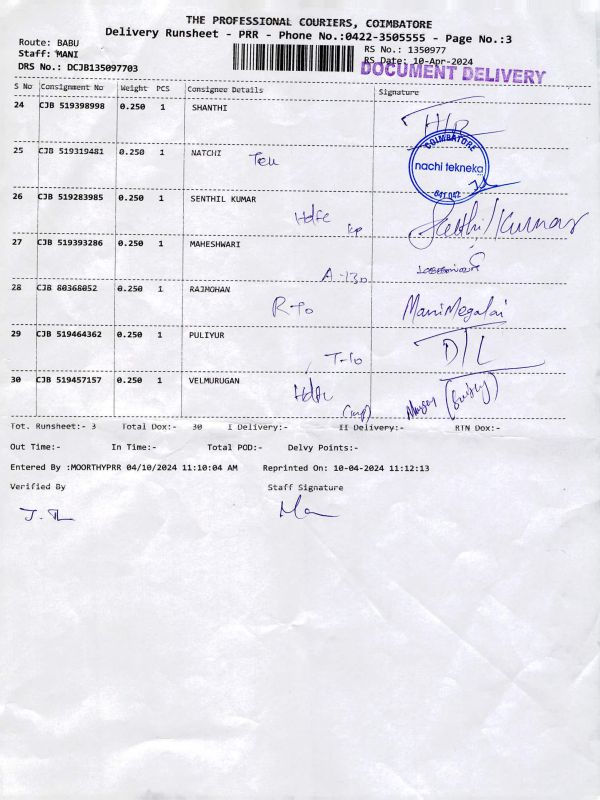 THE PROFESSIONAL COURIERS, COIMBATORE
Delivery Runsheet - PRR - Phone No.:0422-3505555 - Page No.:3
Route: BABU
RS No.: 1350977
Staff: MANI
RS Date: 10-Apr-2024
DRS No.: DCJB135097703
DOCUMENT DELIVERY
S No Consignment No Weight PCS Consignee Details Signature
24 CJB 519398998 0.250 1 SHANTHI
25 CJB 519319481 0.250 1 NATCHI
COIMBATORE
nachi tekneka
641 042
26 CJB 519283985 0.250 1 SENTHIL KUMAR
Hdfc
SenthilKumar
27 CJB 519393286 0.250 1 MAHESHWARI
A-130
28 CJB 80368052 0.250 1 RAJMOHAN
R-to
ManiMegalai
29 CJB 519464362 0.250 1 PULIYUR
T-10
D/L
30 CJB 519457157 0.250 1 VELMURUGAN
Hdfc
Tot. Runsheet:- 3 Total Dox:- 30 I Delivery:- II Delivery:- RTN Dox:-
Out Time:- In Time:- Total POD:- Delvy Points:-
Entered By :MOORTHYPRR 04/10/2024 11:10:04 AM Reprinted On: 10-04-2024 11:12:13
Verified By Staff Signature